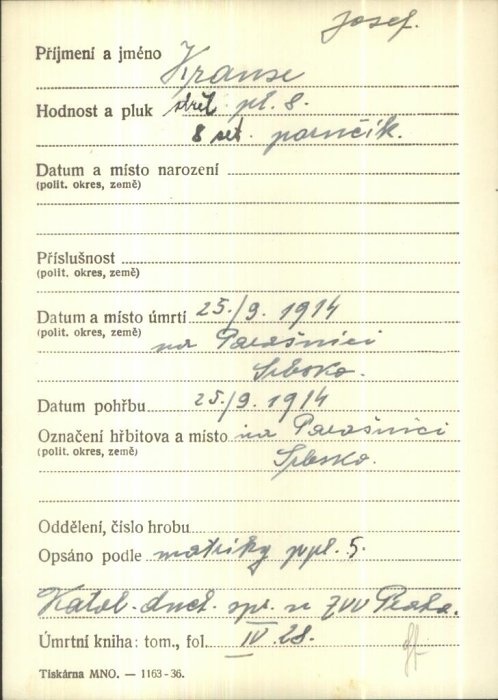 Josef.
Příjmení a jméno Kranse
Hodnost a pluk střel pl. 8.
8 set. poručík.
Datum a místo narození
(polit. okres, země)
Příslušnost
(polit. okres, země)
Datum a místo úmrtí 25./9. 1914
(polit. okres, země) na Parašnici
Srbsko.
Datum pohřbu 25./9. 1914
Označení hřbitova a místo na Parašnici
(polit. okres, země) Srbsko.
Oddělení, číslo hrobu
Opsáno podle matriky ppl. 5.
Katol. duch. spr. n ZVV Praha.
Úmrtní kniha: tom., fol. IV. 28.
Tiskárna MNO. — 1163-36.